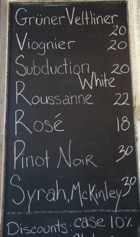 Grüner Veltliner
20
Viognier
20
Subduction 20
White
Roussanne 22
Rosé 18
Pinot Noir 30
Syrah, McKinley 30
Discounts: case 10%